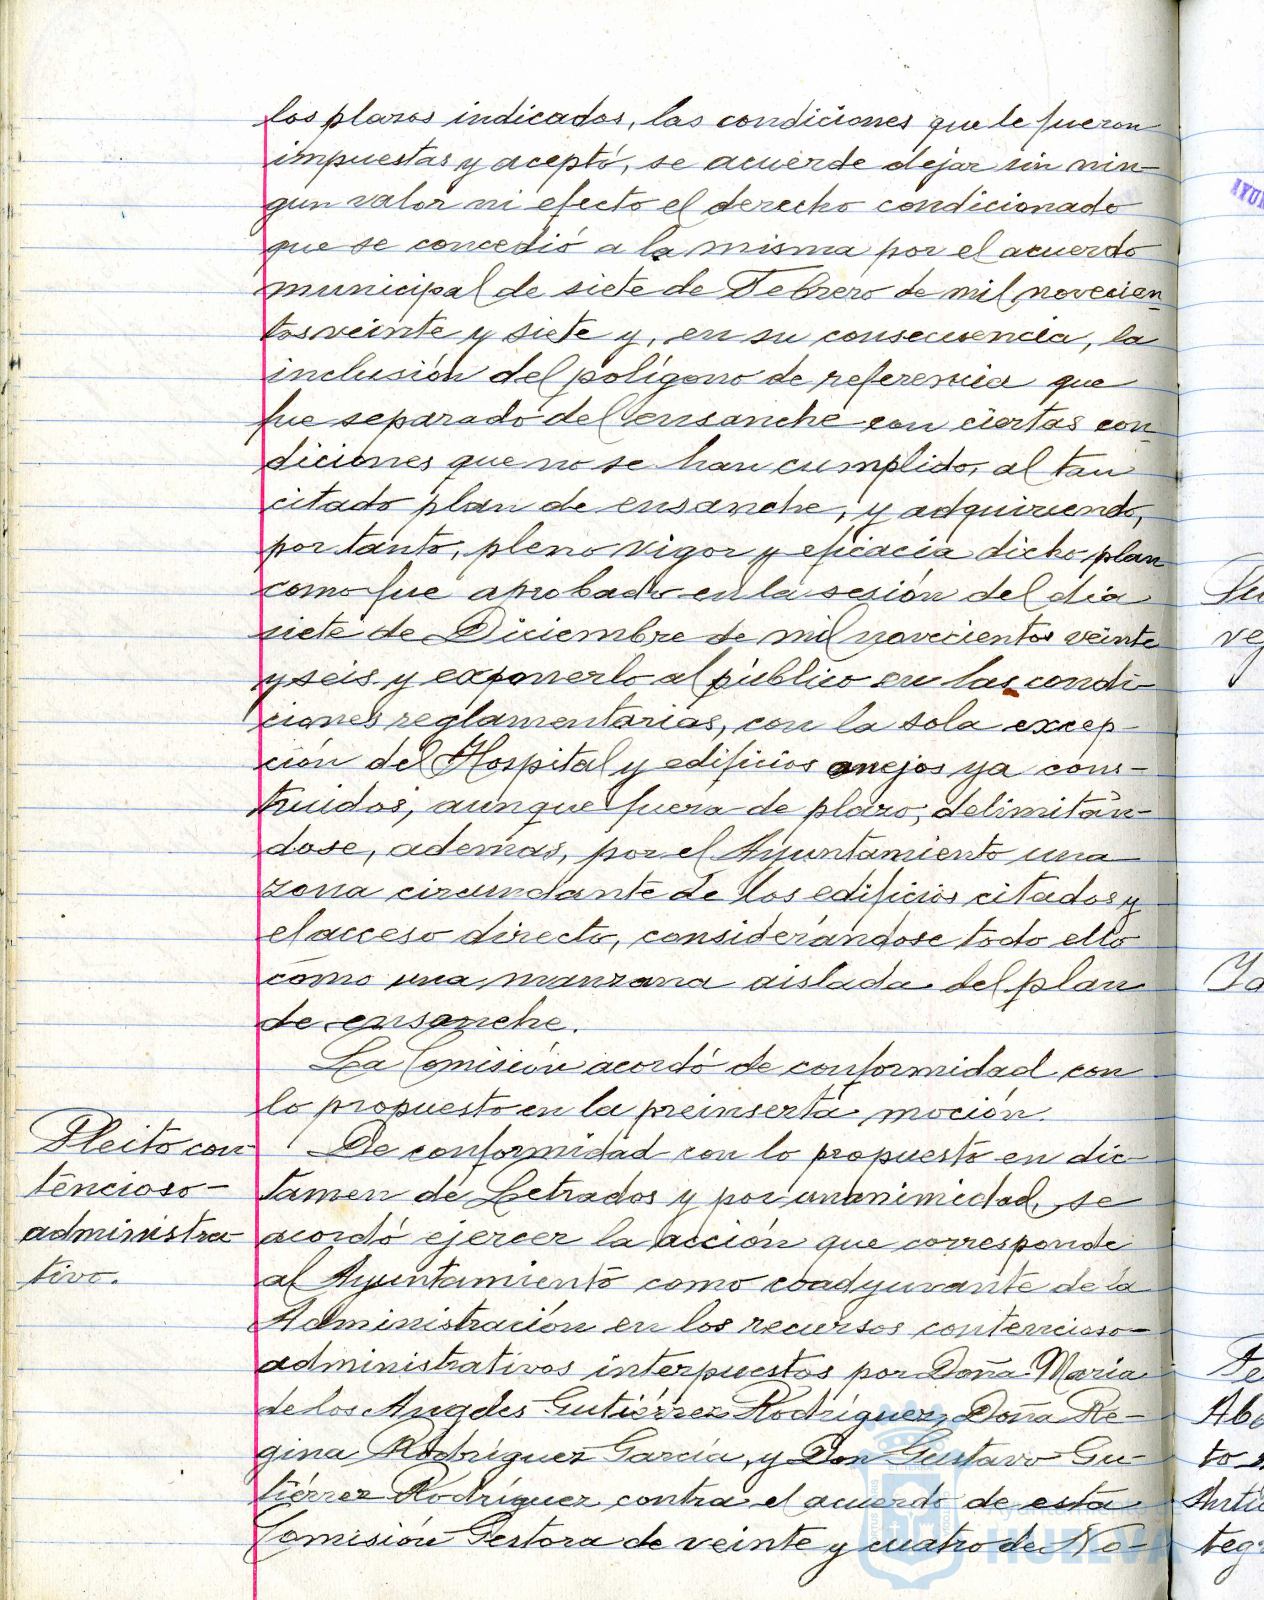 los plazos indicados, las condiciones que le fueron
impuestas y aceptó, se acuerde dejar sin nin-
gun valor ni efecto el derecho condicionado
que se concedió a la misma por el acuerdo
municipal de siete de Febrero de mil novecien-
tos veinte y siete y, en su consecuencia, la
inclusión del polígono de referencia que
fue separado del ensanche con ciertas con-
diciones que no se han cumplido, al tan
citado plan de ensanche, y adquiriendo,
por tanto, pleno vigor y eficacia dicho plan
como fue aprobado en la sesión del día
siete de Diciembre de mil novecientos veinte
y seis y exponerlo al público en las condi-
ciones reglamentarias, con la sola excep-
ción del Hospital y edificios anejos ya cons-
truidos, aunque fuera de plazo, delimitán-
dose, además, por el Ayuntamiento una
zona circundante de los edificios citados y
el acceso directo, considerándose todo ello
como una manzana aislada del plan
de ensanche.
La Comisión acordó de conformidad con
lo propuesto en la preinserta moción.
Pleito con
tencioso-
administra-
tivo.
De conformidad con lo propuesto en dic-
tamen de Letrados y por unanimidad, se
acordó ejercer la acción que corresponde
al Ayuntamiento como coadyuvante de la
Administración en los recursos contencioso-
administrativos interpuestos por Doña María
de los Angeles Gutiérrez Rodríguez, Doña Re-
gina Rodríguez García, y Don Gustavo Gu-
tiérrez Rodríguez contra el acuerdo de esta
Comisión Gestora de veinte y cuatro de No-
Ayuntamiento de
HUELVA